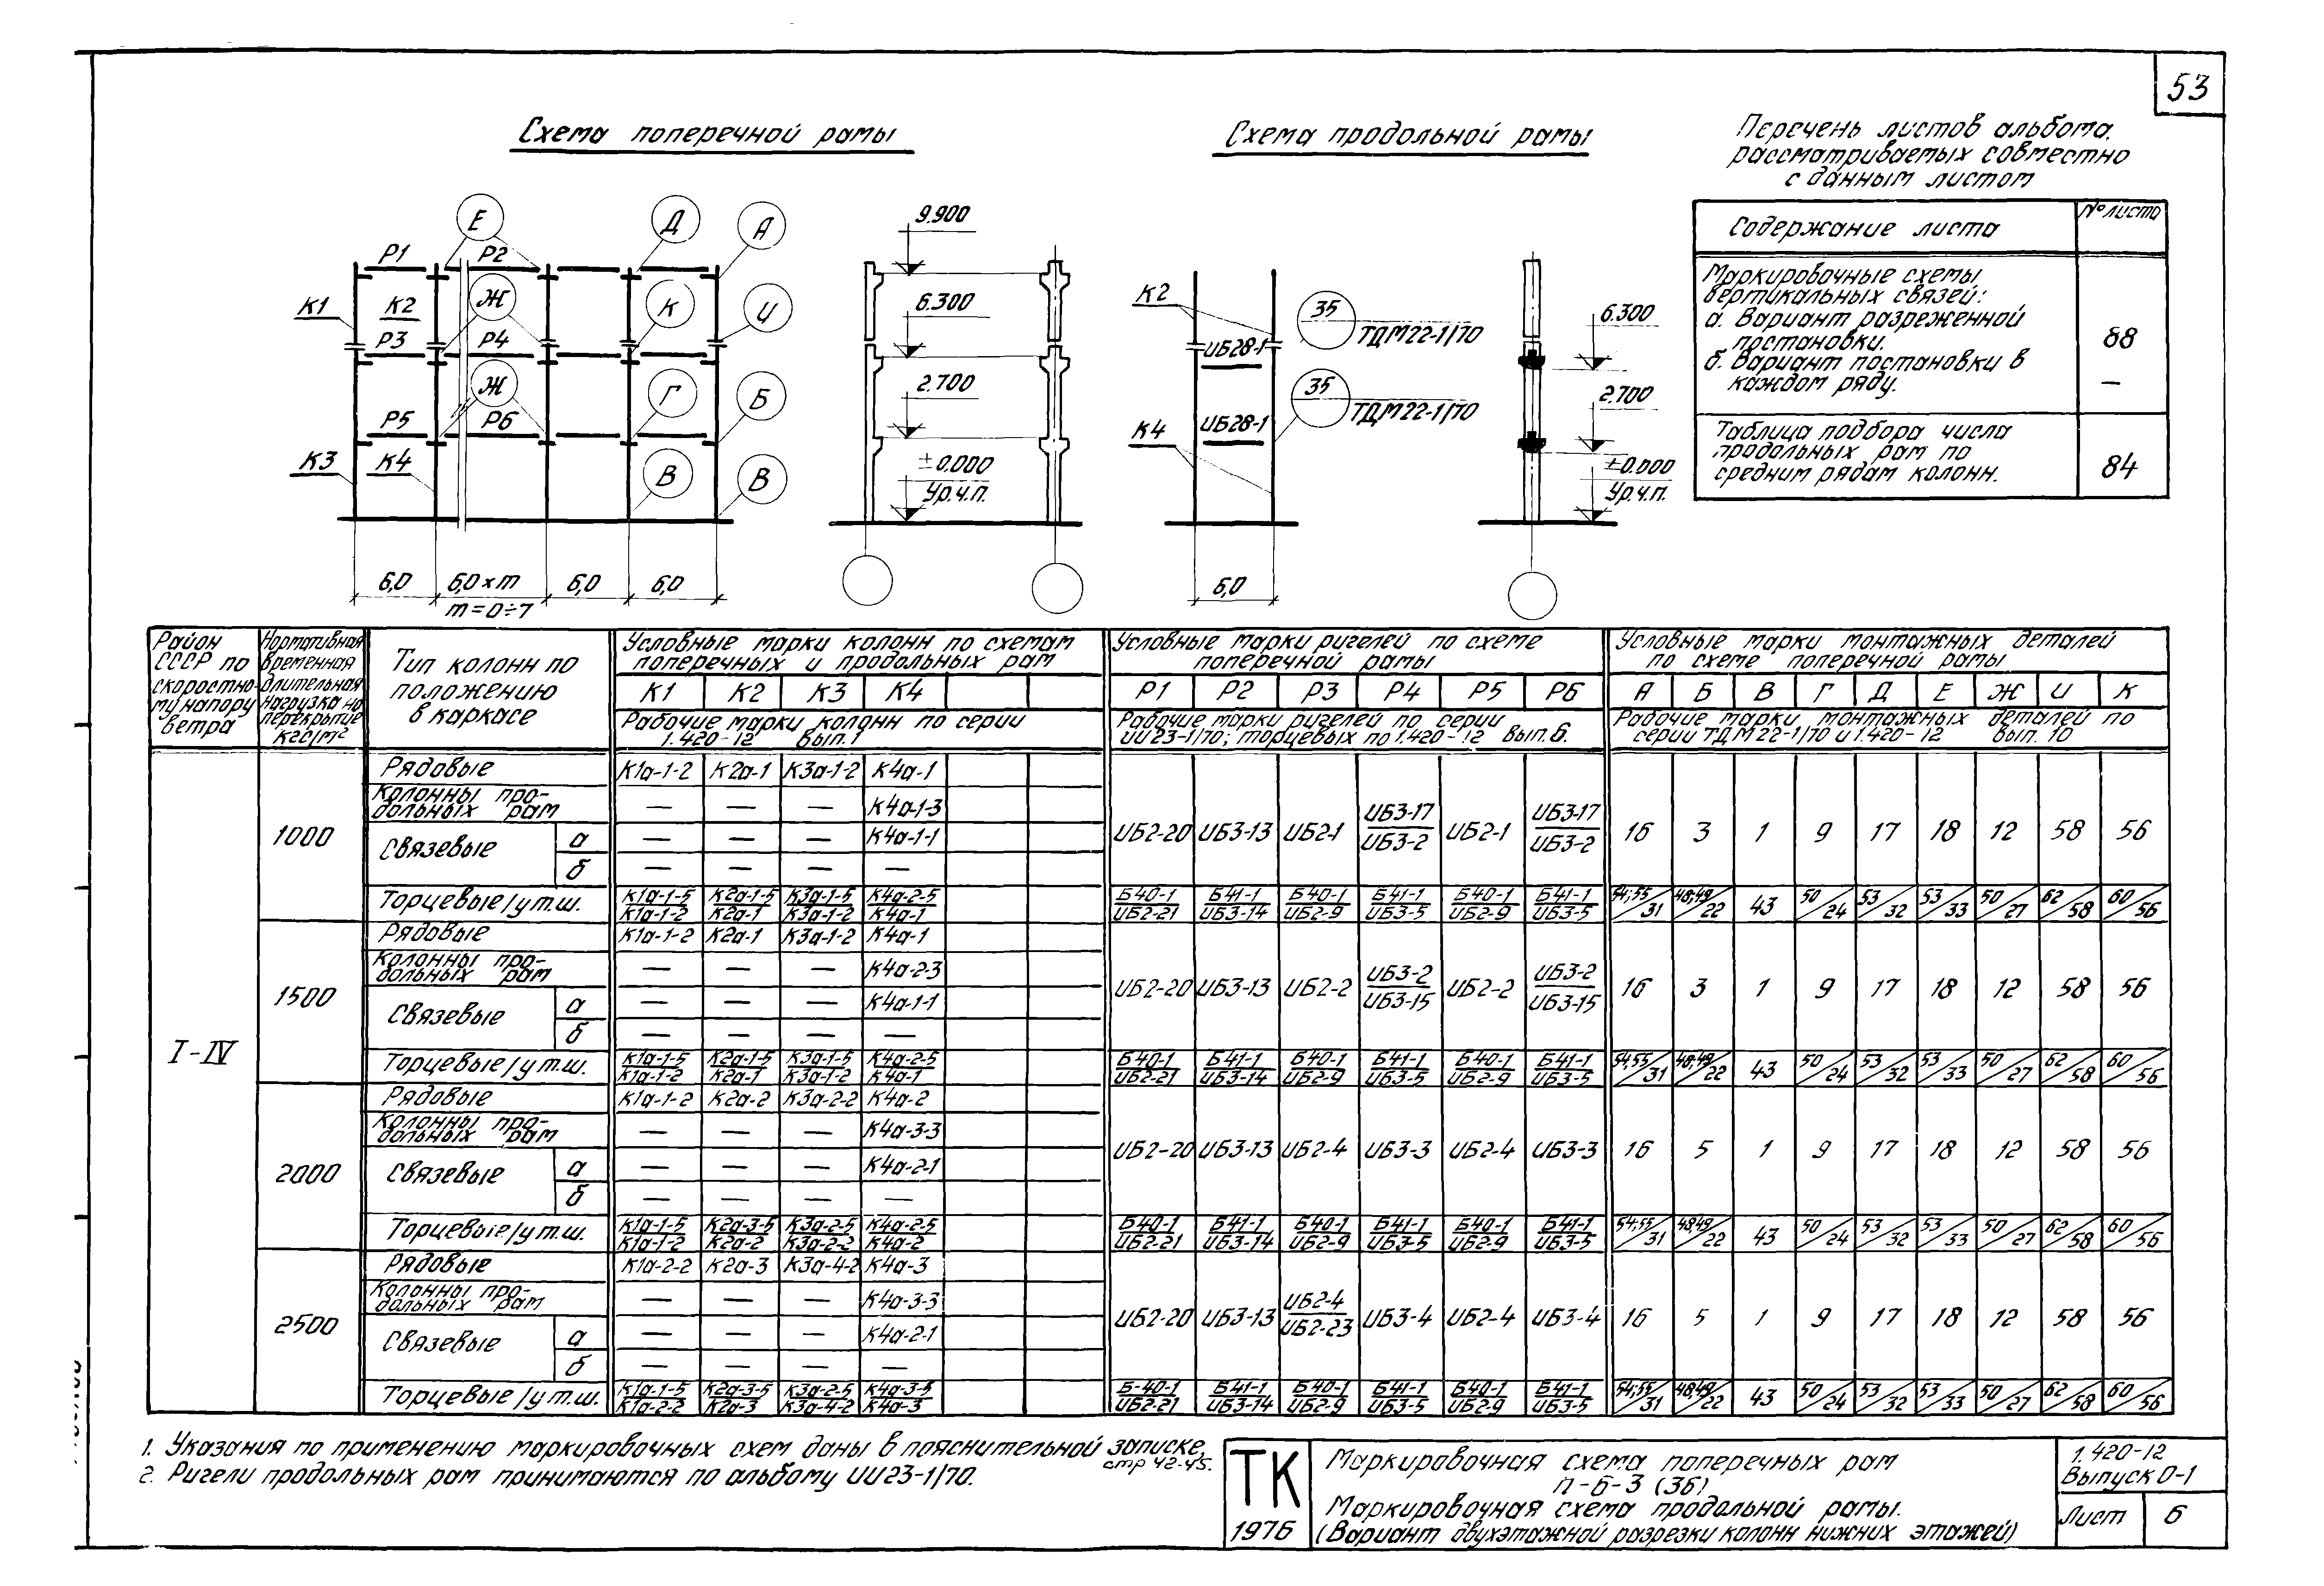 53
Схема поперечной рамы
Схема продольной рамы
Перечень листов альбома,
рассматриваемых совместно
с данным листом
Содержание листа
№ листа
Маркировочные схемы
вертикальных связей:
а. Вариант разреженной
постановки.
88
б. Вариант постановки в
каждом ряду.
—
Таблица подбора числа
продольных рам по
средним рядам колонн.
84
Е Д А
Р1 Р2
К1 К2 Ж К И
Р3 Р4
Ж Г Б
Р5 Р6
К3 К4 В В
6,0 6,0×m 6,0 6,0
m=0÷7
9.900
6.300
2.700
±0.000
Ур.ч.п.
К2
35
ТДМ22-1/70
ИБ28-1
35
ТДМ22-1/70
ИБ28-1
К4
6,0
6.300
2.700
±0.000
Ур.ч.п.
Район
СССР по
скоростно-
му напору
ветра
Нормативная
временная
длительная
нагрузка на
перекрытие
кгс/м²
Тип колонн по
положению
в каркасе
Условные марки колонн по схемам
поперечных и продольных рам
К1 К2 К3 К4
Рабочие марки колонн по серии
1.420-12 вып.1
Условные марки ригелей по схеме
поперечной рамы
Р1 Р2 Р3 Р4 Р5 Р6
Рабочие марки ригелей по серии
ИИ23-1/70; торцевых по 1.420-12 вып.6.
Условные марки монтажных деталей
по схеме поперечной рамы
А Б В Г Д Е Ж И К
Рабочие марки монтажных деталей по
серии ТДМ22-1/70 и 1.420-12 вып. 10
I-IV
1000
Рядовые К1а-1-2 К2а-1 К3а-1-2 К4а-1
Колонны про-
дольных рам — — — К4а-1-3
Связевые а — — — К4а-1-1
б — — — —
ИБ2-20 ИБ3-13 ИБ2-1 ИБ3-17/ИБ3-2 ИБ2-1 ИБ3-17/ИБ3-2 16 3 1 9 17 18 12 58 56
Торцевые/у т.ш. К1а-1-5/К1а-1-2 К2а-1-5/К2а-1 К3а-1-5/К3а-1-2 К4а-2-5/К4а-1 Б40-1/ИБ2-21 Б41-1/ИБ3-14 Б40-1/ИБ2-9 Б41-1/ИБ3-5 Б40-1/ИБ2-9 Б41-1/ИБ3-5 54;55/31 48;49/22 43 50/24 53/32 53/33 50/27 62/58 60/56
1500
Рядовые К1а-1-2 К2а-1 К3а-1-2 К4а-1
Колонны про-
дольных рам — — — К4а-2-3
Связевые а — — — К4а-1-1
б — — — —
ИБ2-20 ИБ3-13 ИБ2-2 ИБ3-2/ИБ3-15 ИБ2-2 ИБ3-2/ИБ3-15 16 3 1 9 17 18 12 58 56
Торцевые/у т.ш. К1а-1-5/К1а-1-2 К2а-1-5/К2а-1 К3а-1-5/К3а-1-2 К4а-2-5/К4а-1 Б40-1/ИБ2-21 Б41-1/ИБ3-14 Б40-1/ИБ2-9 Б41-1/ИБ3-5 Б40-1/ИБ2-9 Б41-1/ИБ3-5 54;55/31 48;49/22 43 50/24 53/32 53/33 50/27 62/58 60/56
2000
Рядовые К1а-1-2 К2а-2 К3а-2-2 К4а-2
Колонны про-
дольных рам — — — К4а-3-3
Связевые а — — — К4а-2-1
б — — — —
ИБ2-20 ИБ3-13 ИБ2-4 ИБ3-3 ИБ2-4 ИБ3-3 16 5 1 9 17 18 12 58 56
Торцевые/у т.ш. К1а-1-5/К1а-1-2 К2а-3-5/К2а-2 К3а-2-5/К3а-2-2 К4а-2-5/К4а-2 Б40-1/ИБ2-21 Б41-1/ИБ3-14 Б40-1/ИБ2-9 Б41-1/ИБ3-5 Б40-1/ИБ2-9 Б41-1/ИБ3-5 54;55/31 48;49/22 43 50/24 53/32 53/33 50/27 62/58 60/56
2500
Рядовые К1а-2-2 К2а-3 К3а-4-2 К4а-3
Колонны про-
дольных рам — — — К4а-3-3
Связевые а — — — К4а-2-1
б — — — —
ИБ2-20 ИБ3-13 ИБ2-4/ИБ2-23 ИБ3-4 ИБ2-4 ИБ3-4 16 5 1 9 17 18 12 58 56
Торцевые/у т.ш. К1а-1-5/К1а-2-2 К2а-3-5/К2а-3 К3а-2-5/К3а-4-2 К4а-3-5/К4а-3 Б-40-1/ИБ2-21 Б41-1/ИБ3-14 Б40-1/ИБ2-9 Б41-1/ИБ3-5 Б40-1/ИБ2-9 Б41-1/ИБ3-5 54;55/31 48;49/22 43 50/24 53/32 53/33 50/27 62/58 60/56
1. Указания по применению маркировочных схем даны в пояснительной записке, стр 42-45.
2. Ригели продольных рам принимаются по альбому ИИ23-1/70.
ТК
1976
Маркировочная схема поперечных рам
П-6-3 (36)
Маркировочная схема продольной рамы.
(Вариант двухэтажной разрезки колонн нижних этажей)
1.420-12
Выпуск 0-1
Лист 6